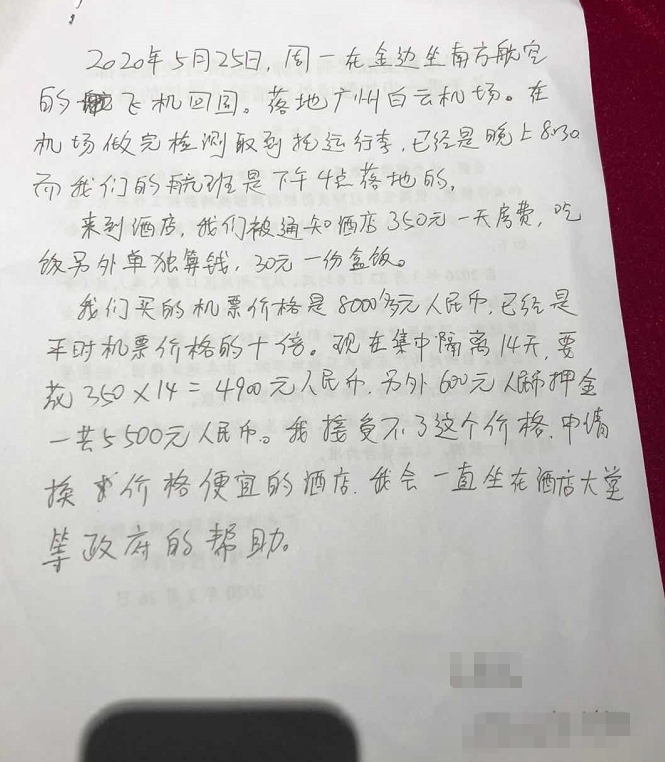 2020年5月25日,周一在金边坐南方航空
的飞机回国。落地广州白云机场。在
机场做完检测取到托运行李,已经是晚上8:30
而我们的航班是下午4点落地的。
来到酒店,我们被通知酒店350元一天房费,吃
饭另外单独算钱,30元一份盒饭。
我们买的机票价格是8000多元人民币,已经是
平时机票价格的十倍。现在集中隔离14天,要
花350×14=4900元人民币.另外600元人民币押金
一共5500元人民币。我接负不了这个价格.申请
换个价格便宜的酒店.我会一直坐在酒店大堂
等政府的帮助。